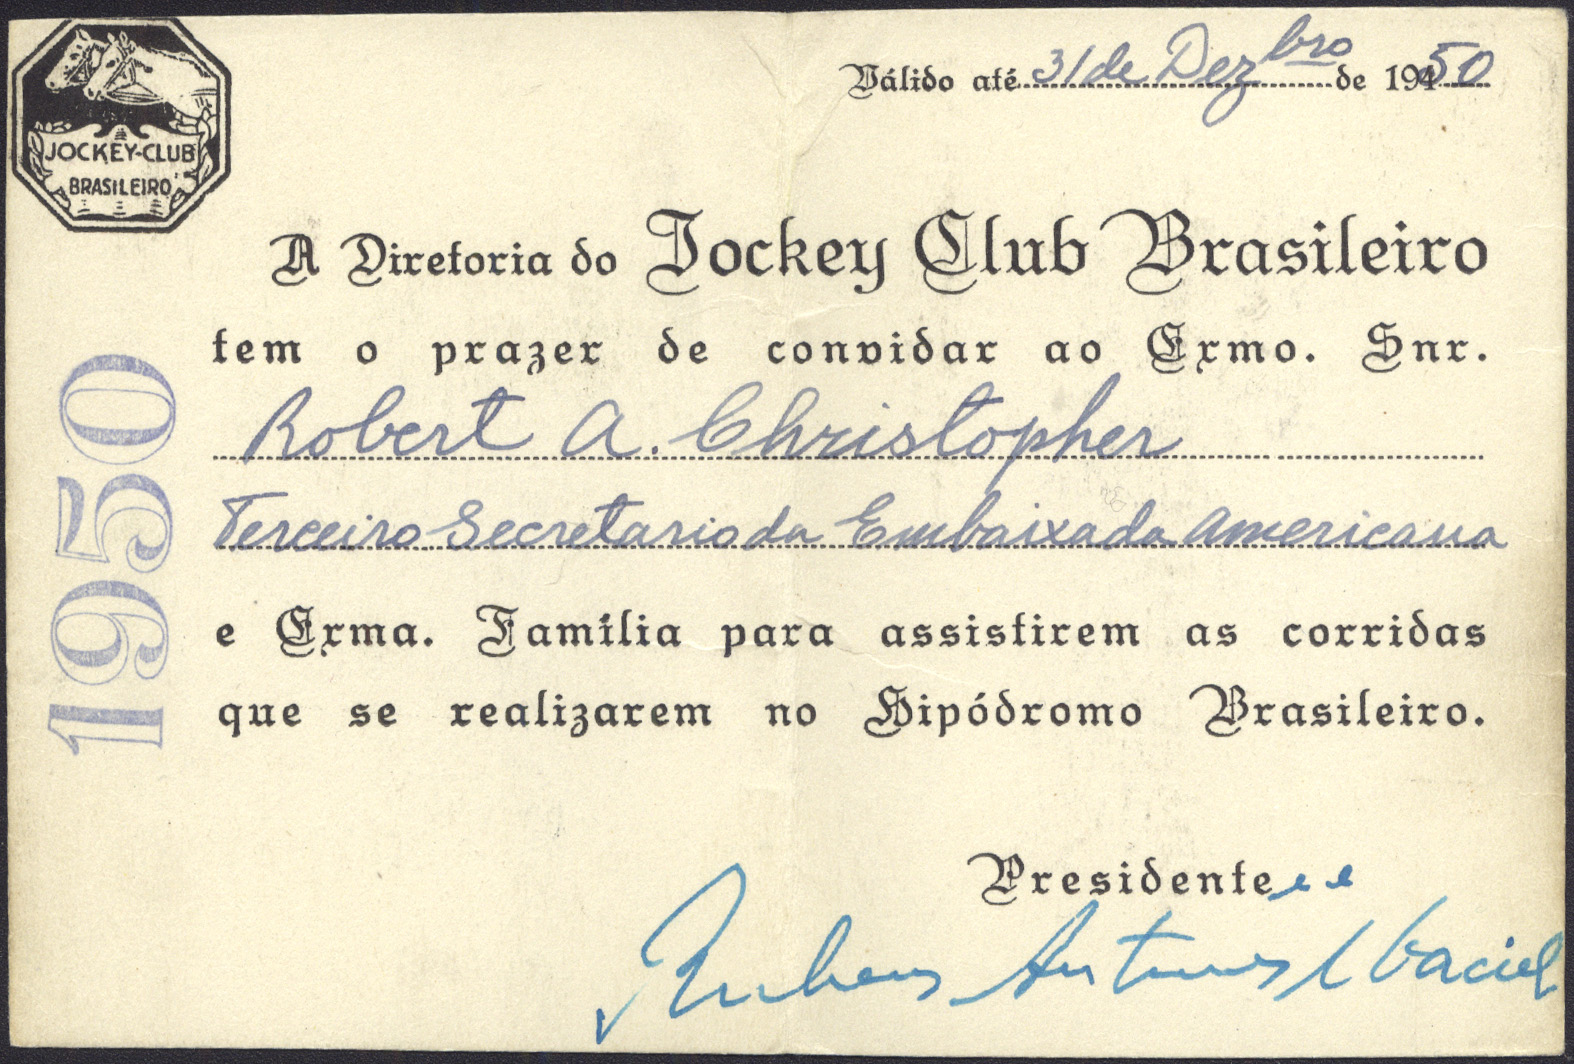 JOCKEY-CLUB
BRASILEIRO
Válido até 31 de Dezbro de 19450
A Diretoria do Jockey Club Brasileiro
tem o prazer de convidar ao Exmo. Snr.
Robert A. Christopher
Terceiro Secretario da Embaixada Americana
e Exma. Família para assistirem as corridas
que se realizarem no Hipódromo Brasileiro.
1950
Presidente e e
Rubens Antunes Maciel